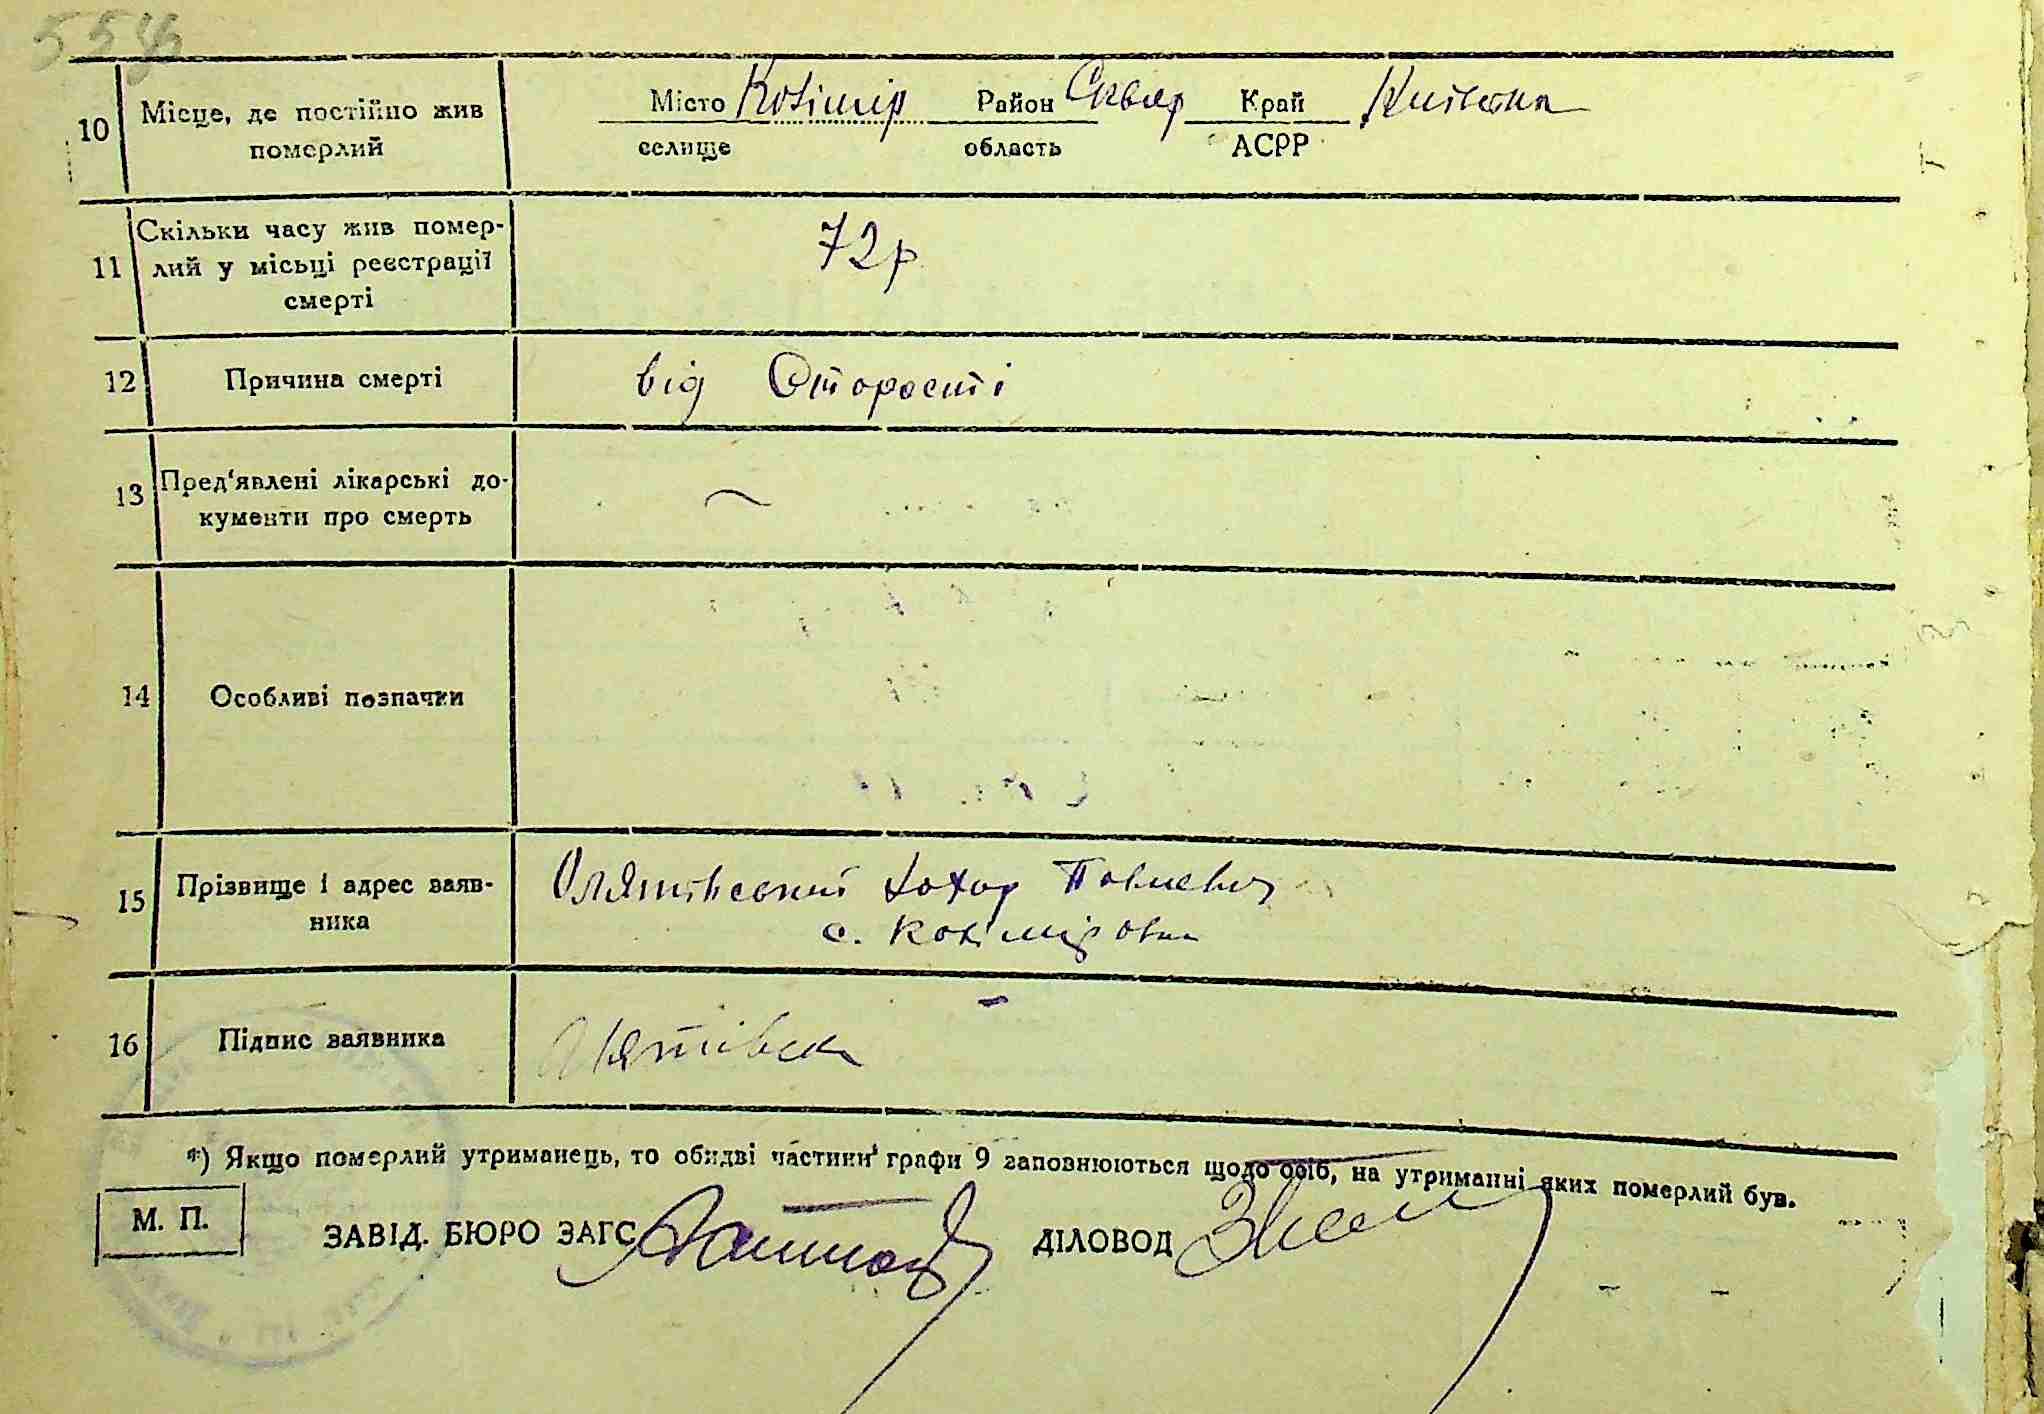 10 Місце, де постійно жив
померлий
Місто Район Сквир Край Київська
селище область АСРР
11 Скільки часу жив помер-
лий у місьці реєстрації
смерті
72р
12 Причина смерті
від Старості
13 Пред'явлені лікарські до-
кументи про смерть
14 Особливі позначки
15 Прізвище і адрес заяв-
ника
Павлевич
с.
16 Підпис заявника
*) Якщо померлий утриманець, то обидві частини графи 9 заповнюються щодо осіб, на утриманні яких померлий був.
М. П.
ЗАВІД. БЮРО ЗАГС ДІЛОВОД